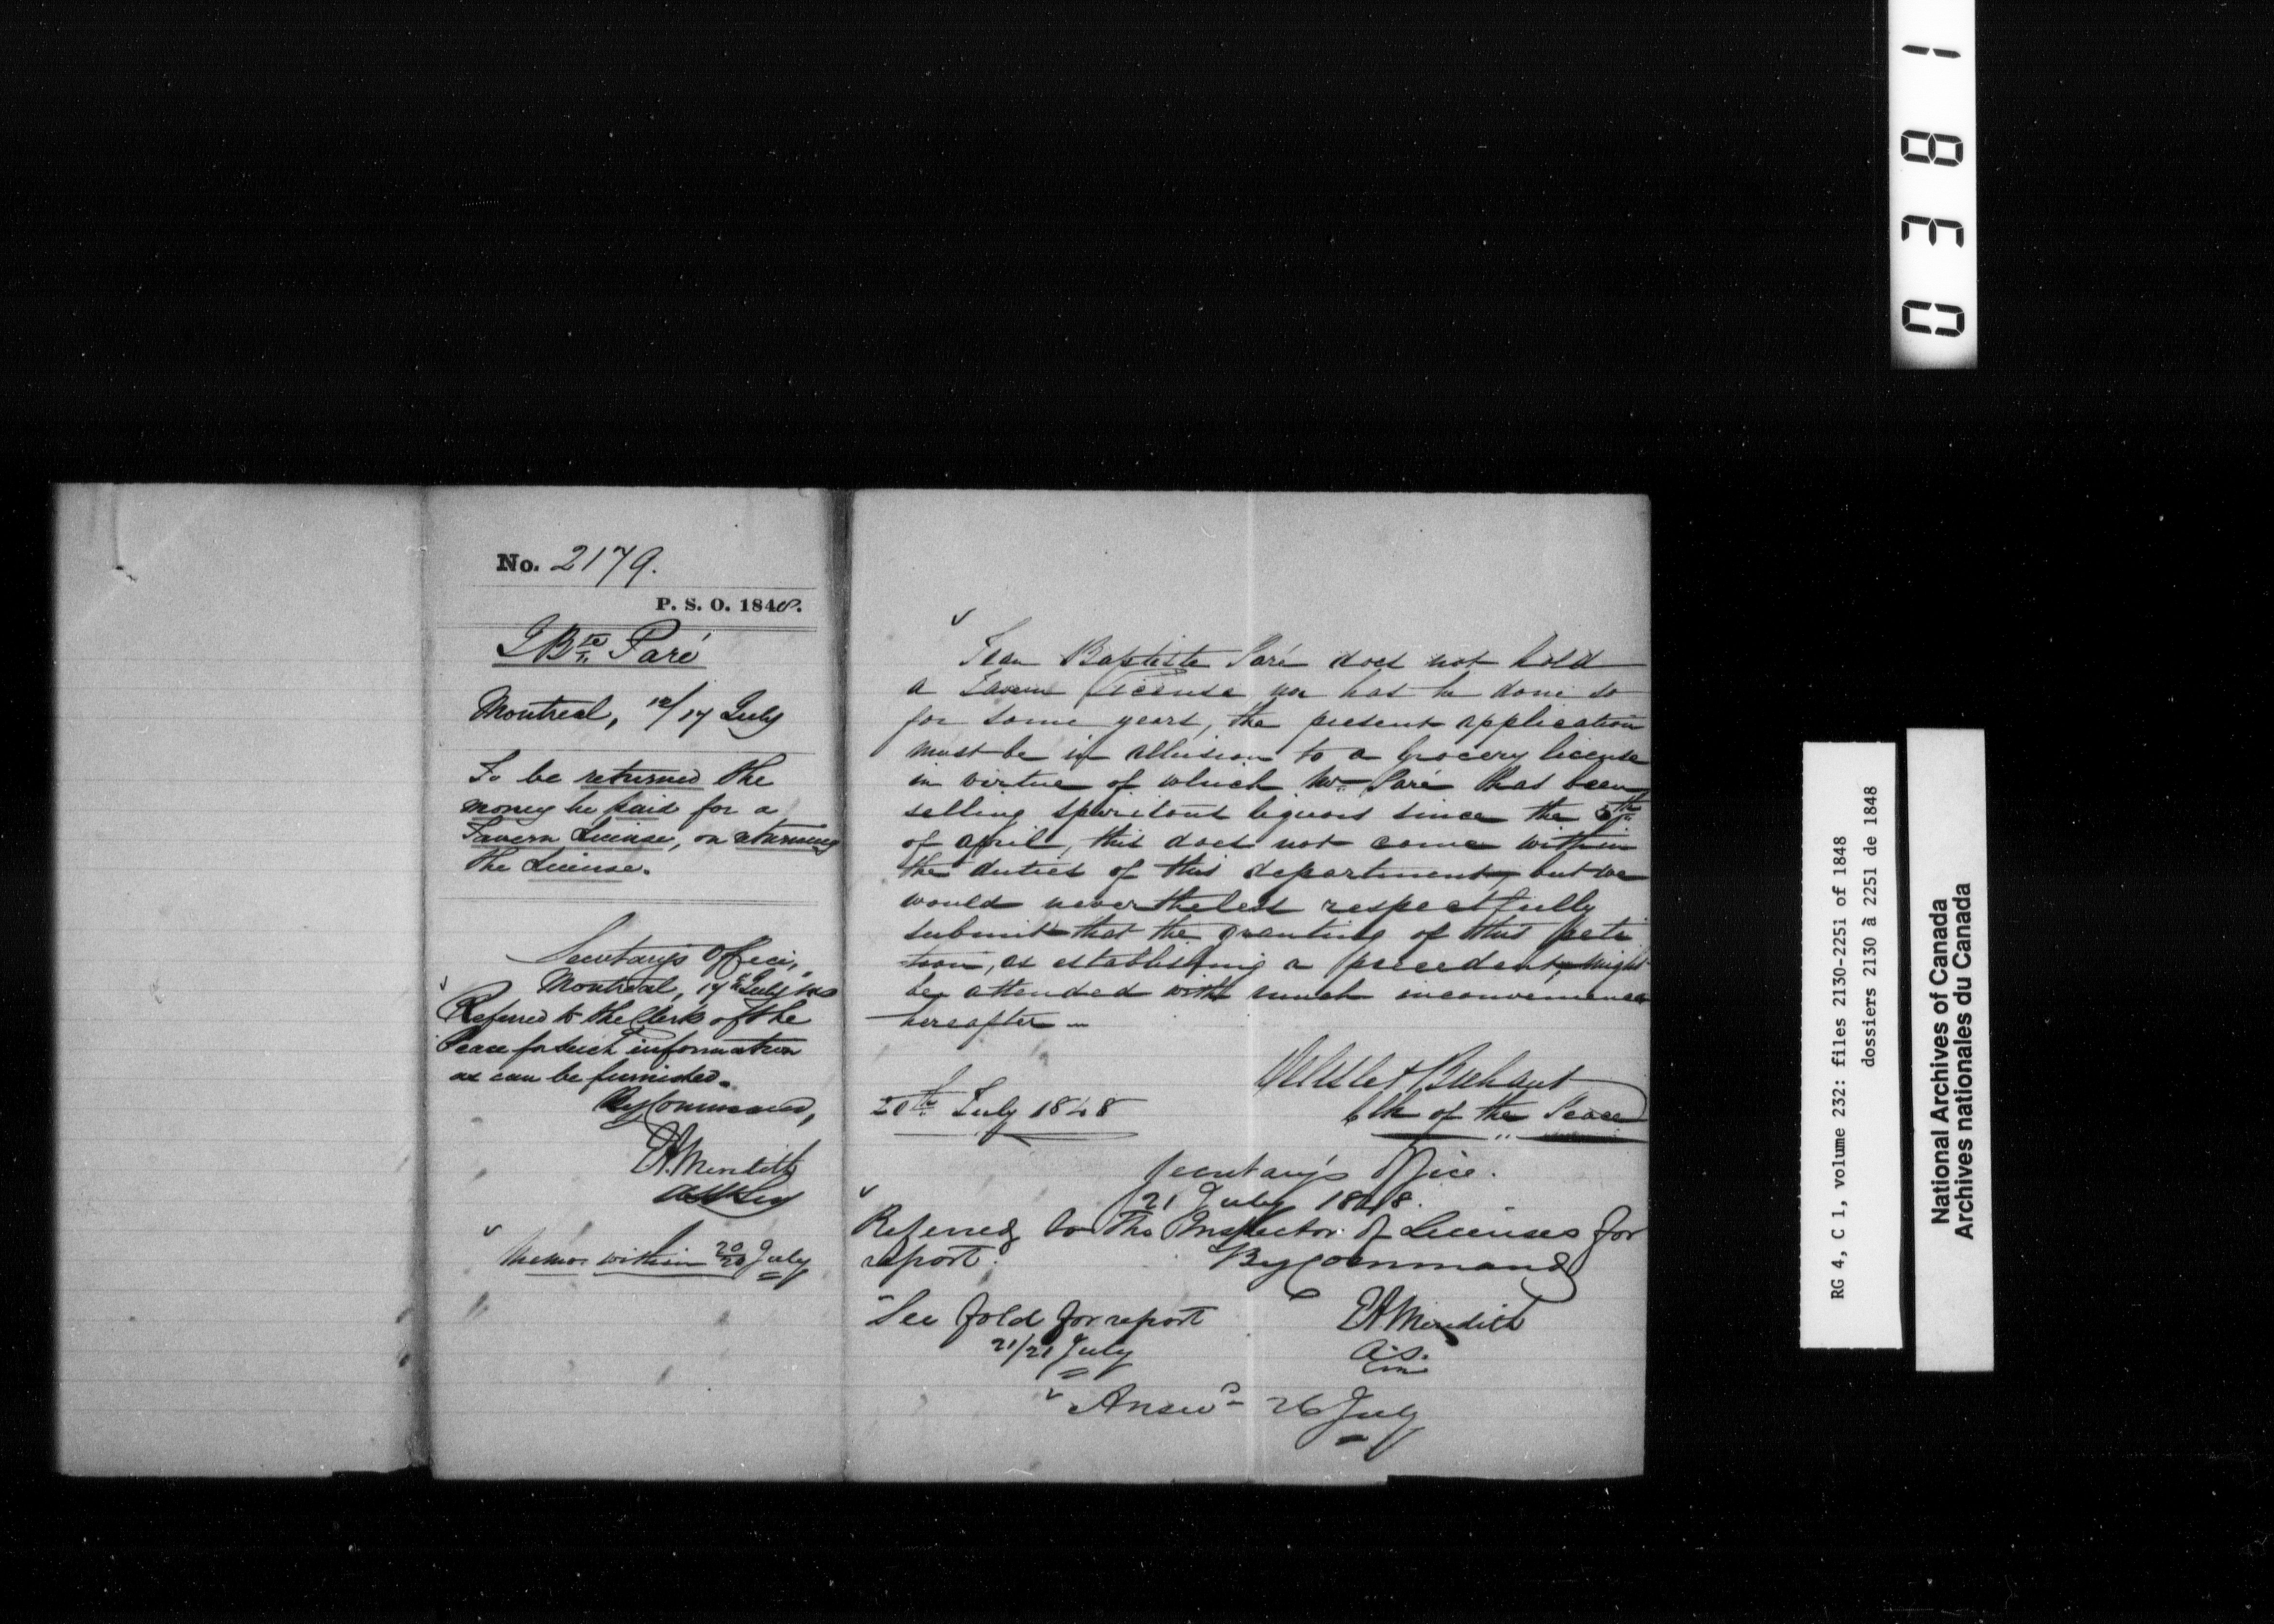 No. 2179.
P. S. O. 1848.
J Bte Paré
Montreal, 12/17 July
To be returned the
money he paid for a
Tavern License, on returning
the License.
Secretary's Office,
Montreal, 17th July 1848
Referred to the Clerk of the
Peace for such information
as can be furnished.
By Command,
E A Meredith
Asst Secy
Memo. within 20/20 July
Jean Baptiste Paré does not hold
a Tavern License nor has he done so
for some years, the present application
must be in allusion to a Grocery license
in virtue of which Mr. Paré has been
selling spiritous liquors since the 5th
of april, this does not come within
the duties of this department, but we
would nevertheless respectfully
submit that the granting of this peti
tion, as establishing a precedent, might
be attended with much inconvenience
hereafter
Delisle & Brehaut
Clk of the Peace
20th July 1848
Secretary's Office.
21 July 1848.
Referred to The Inspector of Licenses for
report.
By Command
E A Meredith
A. S.
See fold for report
21/21 July
Answd 26 July
0381
RG 4, C 1, volume 232: files 2130-2251 of 1848
dossiers 2130 à 2251 de 1848
National Archives of Canada
Archives nationales du Canada